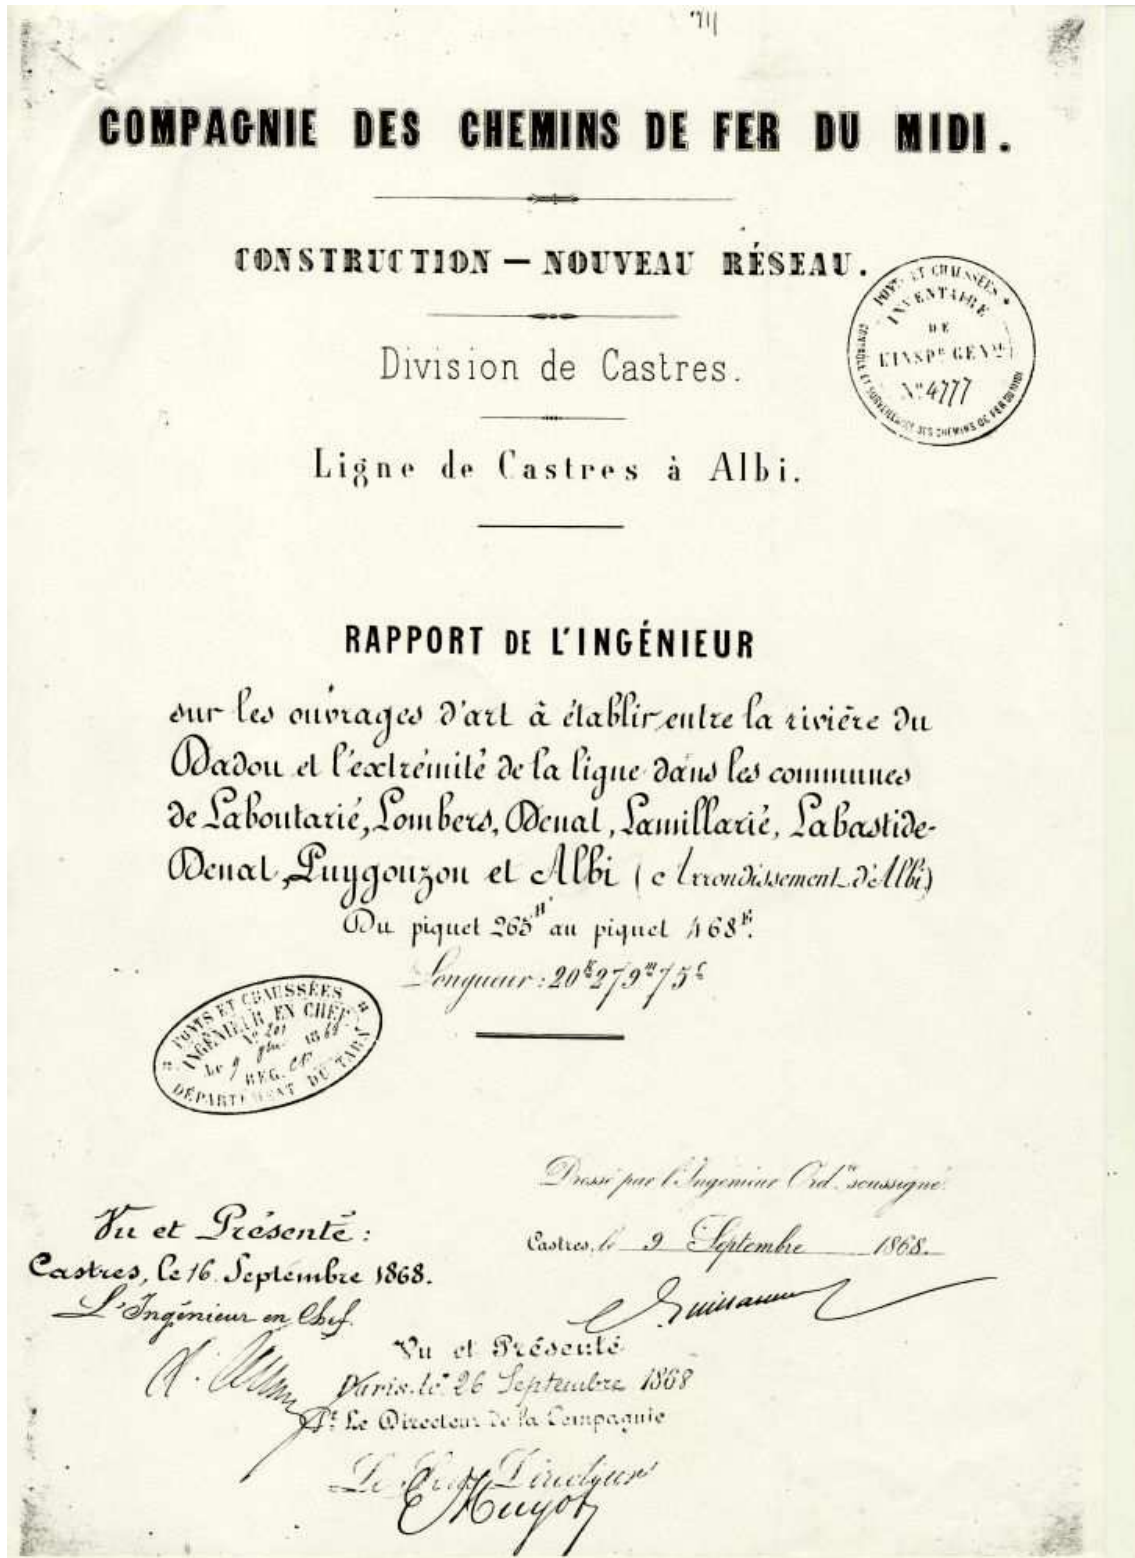 COMPAGNIE DES CHEMINS DE FER DU MIDI.
CONSTRUCTION — NOUVEAU RÉSEAU.
PONTS ET CHAUSSÉES
INVENTAIRE
DE
L'INSP.r GÉN.al
N.o 4777
CONTRÔLE ET SURVEILLANCE DES CHEMINS DE FER DU MIDI
Division de Castres.
Ligne de Castres à Albi.
RAPPORT DE L'INGÉNIEUR
sur les ouvrages d'art à établir entre la rivière du
Dadou et l'extrémité de la ligne dans les communes
de Laboutarié, Lombers, Denat, Lamillarié, Labastide-
Denat, Puygouzon et Albi (Arrondissement d'Albi)
Du piquet 265H au piquet 468K.
Longueur : 20K279m75c
PONTS ET CHAUSSÉES
INGÉNIEUR EN CHEF
No 201
Le 9 1868
REG.
DÉPARTEMENT DU TARN
Dressé par l'Ingénieur Ord.re soussigné
Castres, le 9 Septembre 1868.
Vu et Présenté :
Castres, le 16 Septembre 1868.
L'Ingénieur en Chef
Vu et Présenté
Paris, le 26 Septembre 1868
Pr. Le Directeur de la Compagnie
Le Directeur